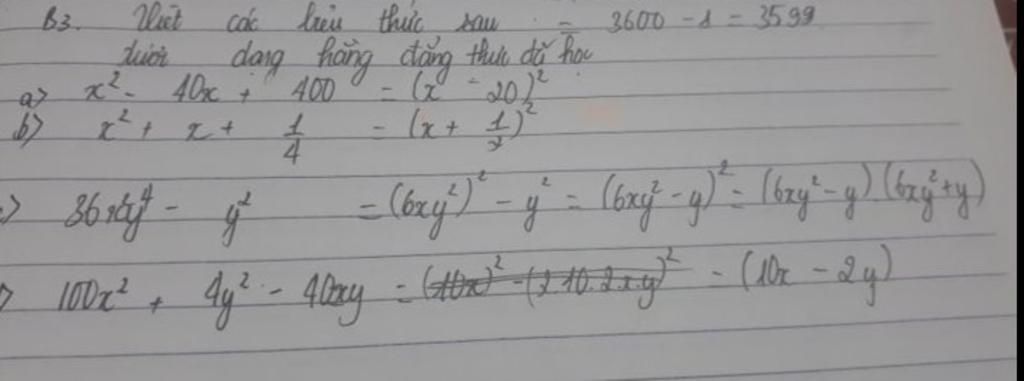 B3. Viết các biểu thức sau = 3600 - 1 = 3599
dưới dạng hằng đẳng thức đã học
a> x² - 40x + 400 = (x - 20)²
b> x² + x + 1/4 = (x + 1/2)²
> 36x²y⁴ - y² = (6xy²)² - y² = (6xy² - y)² = (6xy² - y).(6xy² + y)
> 100x² + 4y² - 40xy = (10x)² - (2.10.2.x.y)² = (10x - 2y)